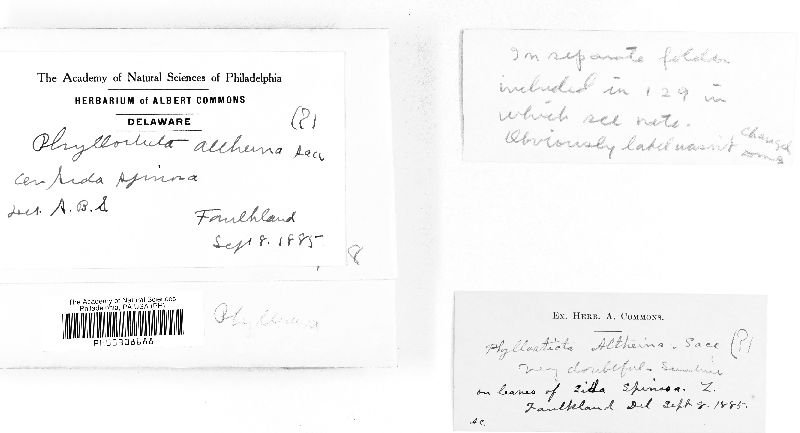 The Academy of Natural Sciences of Philadelphia
HERBARIUM of ALBERT COMMONS
DELAWARE
(?)
Phyllosticta altheina Sacc
on Sida spinosa
Det. A.B.S
Faulkland
Sept 8. 1885
8
The Academy of Natural Sciences
Philadelphia, PA USA (PH)
Phyllos
In separate folder
included in 129 in
which see note.
Obviously label wasn't changed
Ex. Herb. A. Commons.
Phyllosticta Altheina. Sacc (?)
Very doubtful
on leaves of Sida Spinosa. L.
Faulkland Del Sept 8. 1885.
AC.